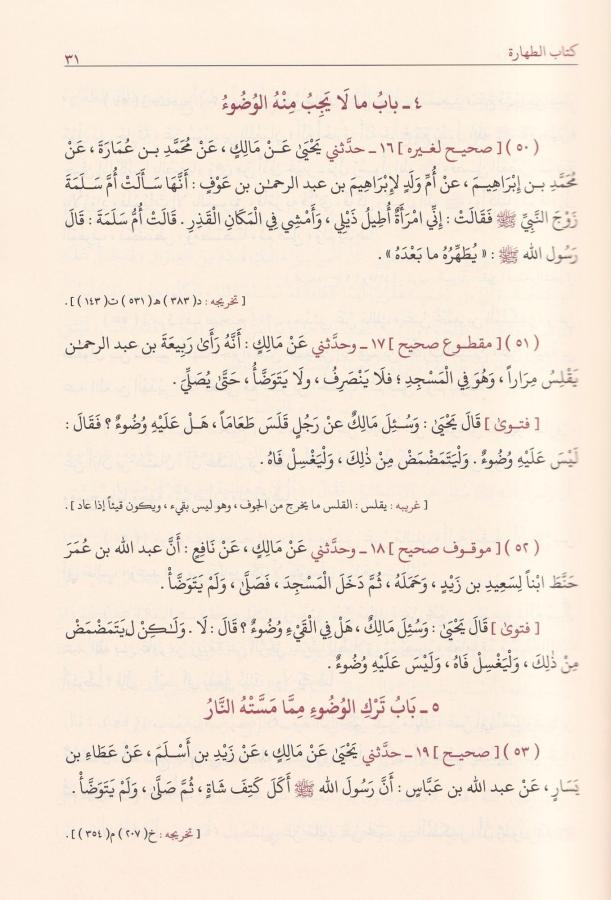 كتاب الطهارة
٣١
٤ ـ بابُ ما لَا يَجِبُ مِنْهُ الوُضُوءُ
( ٥٠ ) [ صحيح لغيره ] ١٦ ـ حدَّثني يَحْيَىٰ عَنْ مَالِكٍ ، عَنْ مُحَمَّدِ بنِ عُمَارَةَ ، عَنْ
مُحَمَّدِ بنِ إِبْرَاهِيمَ ، عنْ أُمِّ وَلَدٍ لإِبْرَاهِيمَ بن عبد الرحمٰن بن عَوْفٍ : أَنَّهَا سَأَلَتْ أُمَّ سَلَمَةَ
زَوْجَ النَّبِيِّ ﷺ فَقَالَتْ : إِنِّي امْرَأَةٌ أُطِيلُ ذَيْلِي ، وَأَمْشِي فِي الْمَكَانِ الْقَذِرِ . قَالَتْ أُمُّ سَلَمَةَ : قَالَ
رَسُول الله ﷺ : « يُطَهِّرُهُ ما بَعْدَهُ » .
[ تخريجه : د( ٣٨٣ ) هـ( ٥٣١ ) ت( ١٤٣ ) ] .
( ٥١ ) [ مقطوع صحيح ] ١٧ ـ وحدَّثني عَنْ مَالِكٍ : أَنَّهُ رَأَىٰ رَبِيعَةَ بن عبد الرحمٰن
يَقْلِسُ مِرَاراً ، وَهُوَ فِي الْمَسْجِدِ ؛ فلَا يَنْصَرِفُ ، ولَا يَتَوَضَّأُ ، حَتَّىٰ يُصَلِّيَ .
[ فتوىٰ ] قَالَ يَحْيَىٰ : وَسُئِلَ مَالِكٌ عنْ رَجُلٍ قَلَسَ طَعَاماً ، هَلْ عَلَيْهِ وُضُوءٌ ؟ فَقَالَ :
لَيْسَ عَلَيْهِ وُضُوءٌ . وَلْيَتَمَضْمَضْ مِنْ ذٰلِكَ ، وَلْيَغْسِلْ فَاهُ .
[ غريبه : يقلس : القلس ما يخرج من الجوف ، وهو ليس بقيء ، ويكون قيئاً إذا عاد ] .
( ٥٢ ) [ موقوف صحيح ] ١٨ ـ وحدَّثني عَنْ مَالِكٍ ، عَنْ نَافِعٍ : أَنَّ عبد الله بن عُمَرَ
حَنَّطَ ابْناً لِسَعِيدِ بن زَيْدٍ ، وَحَمَلَهُ ، ثُمَّ دَخَلَ الْمَسْجِدَ ، فَصَلَّىٰ ، وَلَمْ يَتَوَضَّأْ .
[ فتوىٰ ] قَالَ يَحْيَىٰ : وَسُئِلَ مَالِكٌ ، هَلْ فِي الْقَيْءِ وُضُوءٌ ؟ قَالَ : لَا . وَلَـٰكِنْ لِيَتَمَضْمَضْ
مِنْ ذٰلِكَ ، وَلْيَغْسِلْ فَاهُ ، وَلَيْسَ عَلَيْهِ وُضُوءٌ .
٥ ـ بَابُ تَرْكِ الوُضُوءِ مِمَّا مَسَّتْهُ النَّارُ
( ٥٣ ) [ صحيح ] ١٩ ـ حدَّثني يَحْيَىٰ عَنْ مَالِكٍ ، عَنْ زَيْدِ بن أَسْلَمَ ، عَنْ عَطَاءِ بن
يَسَارٍ ، عَنْ عبد الله بن عَبَّاسٍ : أَنَّ رَسُولَ الله ﷺ أَكَلَ كَتِفَ شَاةٍ ، ثُمَّ صَلَّىٰ ، وَلَمْ يَتَوَضَّأْ .
[ تخريجه : خ( ٢٠٧ ) م( ٣٥٤ ) ] .